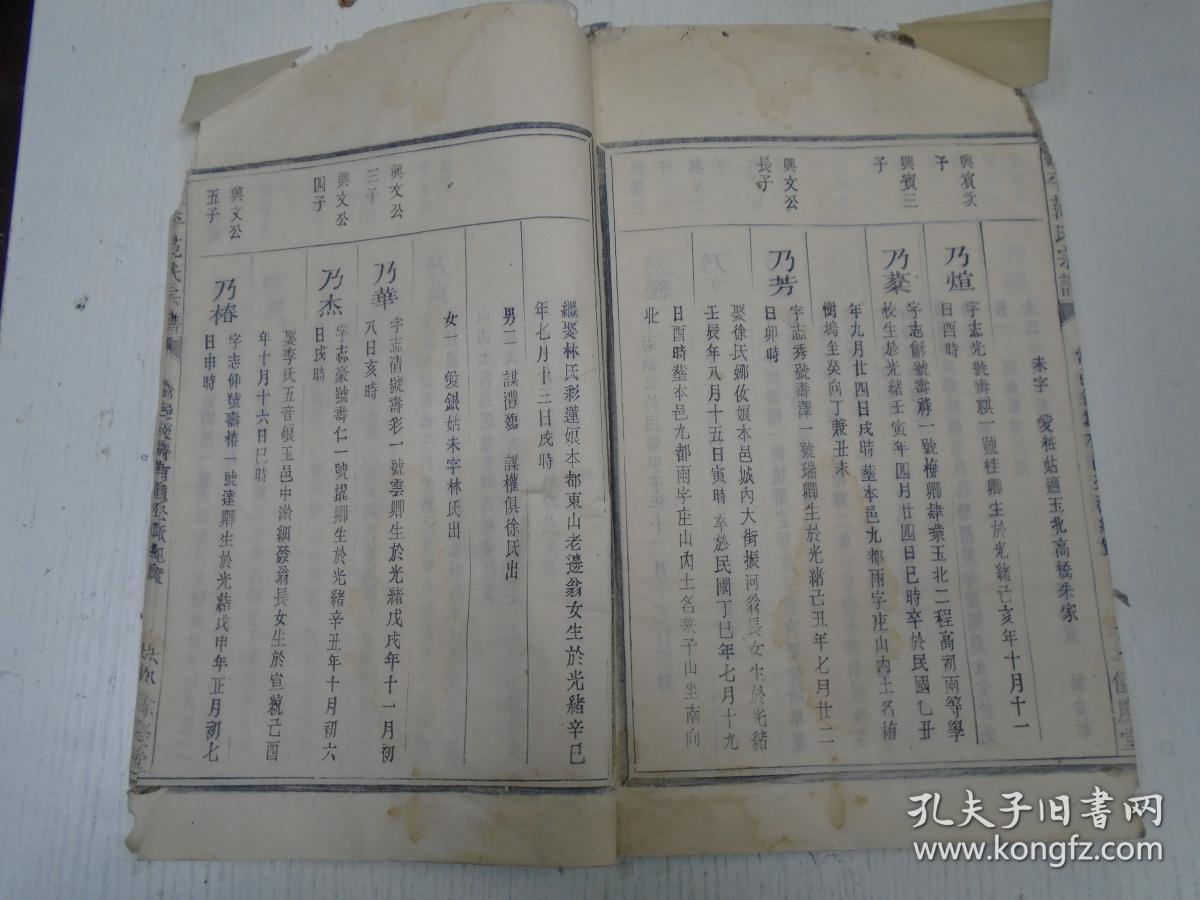 未字
愛粧姑適玉北高橋朱家
興賓次
子
乃煊
字志光號壽祺一號桂卿生於光緒己亥年十月十一
日酉時
興賓三
子
乃蓁
字志龢號壽祿一號梅卿肄業玉北二程高初兩等學
校生於光緒壬寅年四月廿四日巳時卒於民國乙丑
年九月廿四日戌時塟本邑九都雨字庄山內土名梅
樹塢坐癸向丁兼丑未
興文公
長子
乃芳
字志秀號壽澤一號瑞卿生於光緒己丑年七月廿二
日卯時
娶徐氏娜攸娘本邑城內大街振河翁長女生於光緒
壬辰年八月十五日寅時卒於民國丁巳年七月十九
日酉時塟本邑九都雨字庄山內土名菜子山坐南向
北
繼娶林氏彩蓮娘本都東山老邊翁女生於光緒辛巳
年七月十三日戌時
男二 謀禮殤 謀權俱徐氏出
女一 愛銀姑未字林氏出
興文公
三子
乃華
字志清號壽彩一號雲卿生於光緒戊戌年十一月初
八日亥時
興文公
四子
乃杰
字志豪號壽仁一號擢卿生於光緒辛丑年十月初六
日戌時
娶李氏五音娘玉邑中淤細發翁長女生於宣統己酉
年十月十六日巳時
興文公
五子
乃椿
字志仰號壽椿一號達卿生於光緒戊申年正月初七
日申時
范氏宗譜
孔夫子旧书网
www.kongfz.com